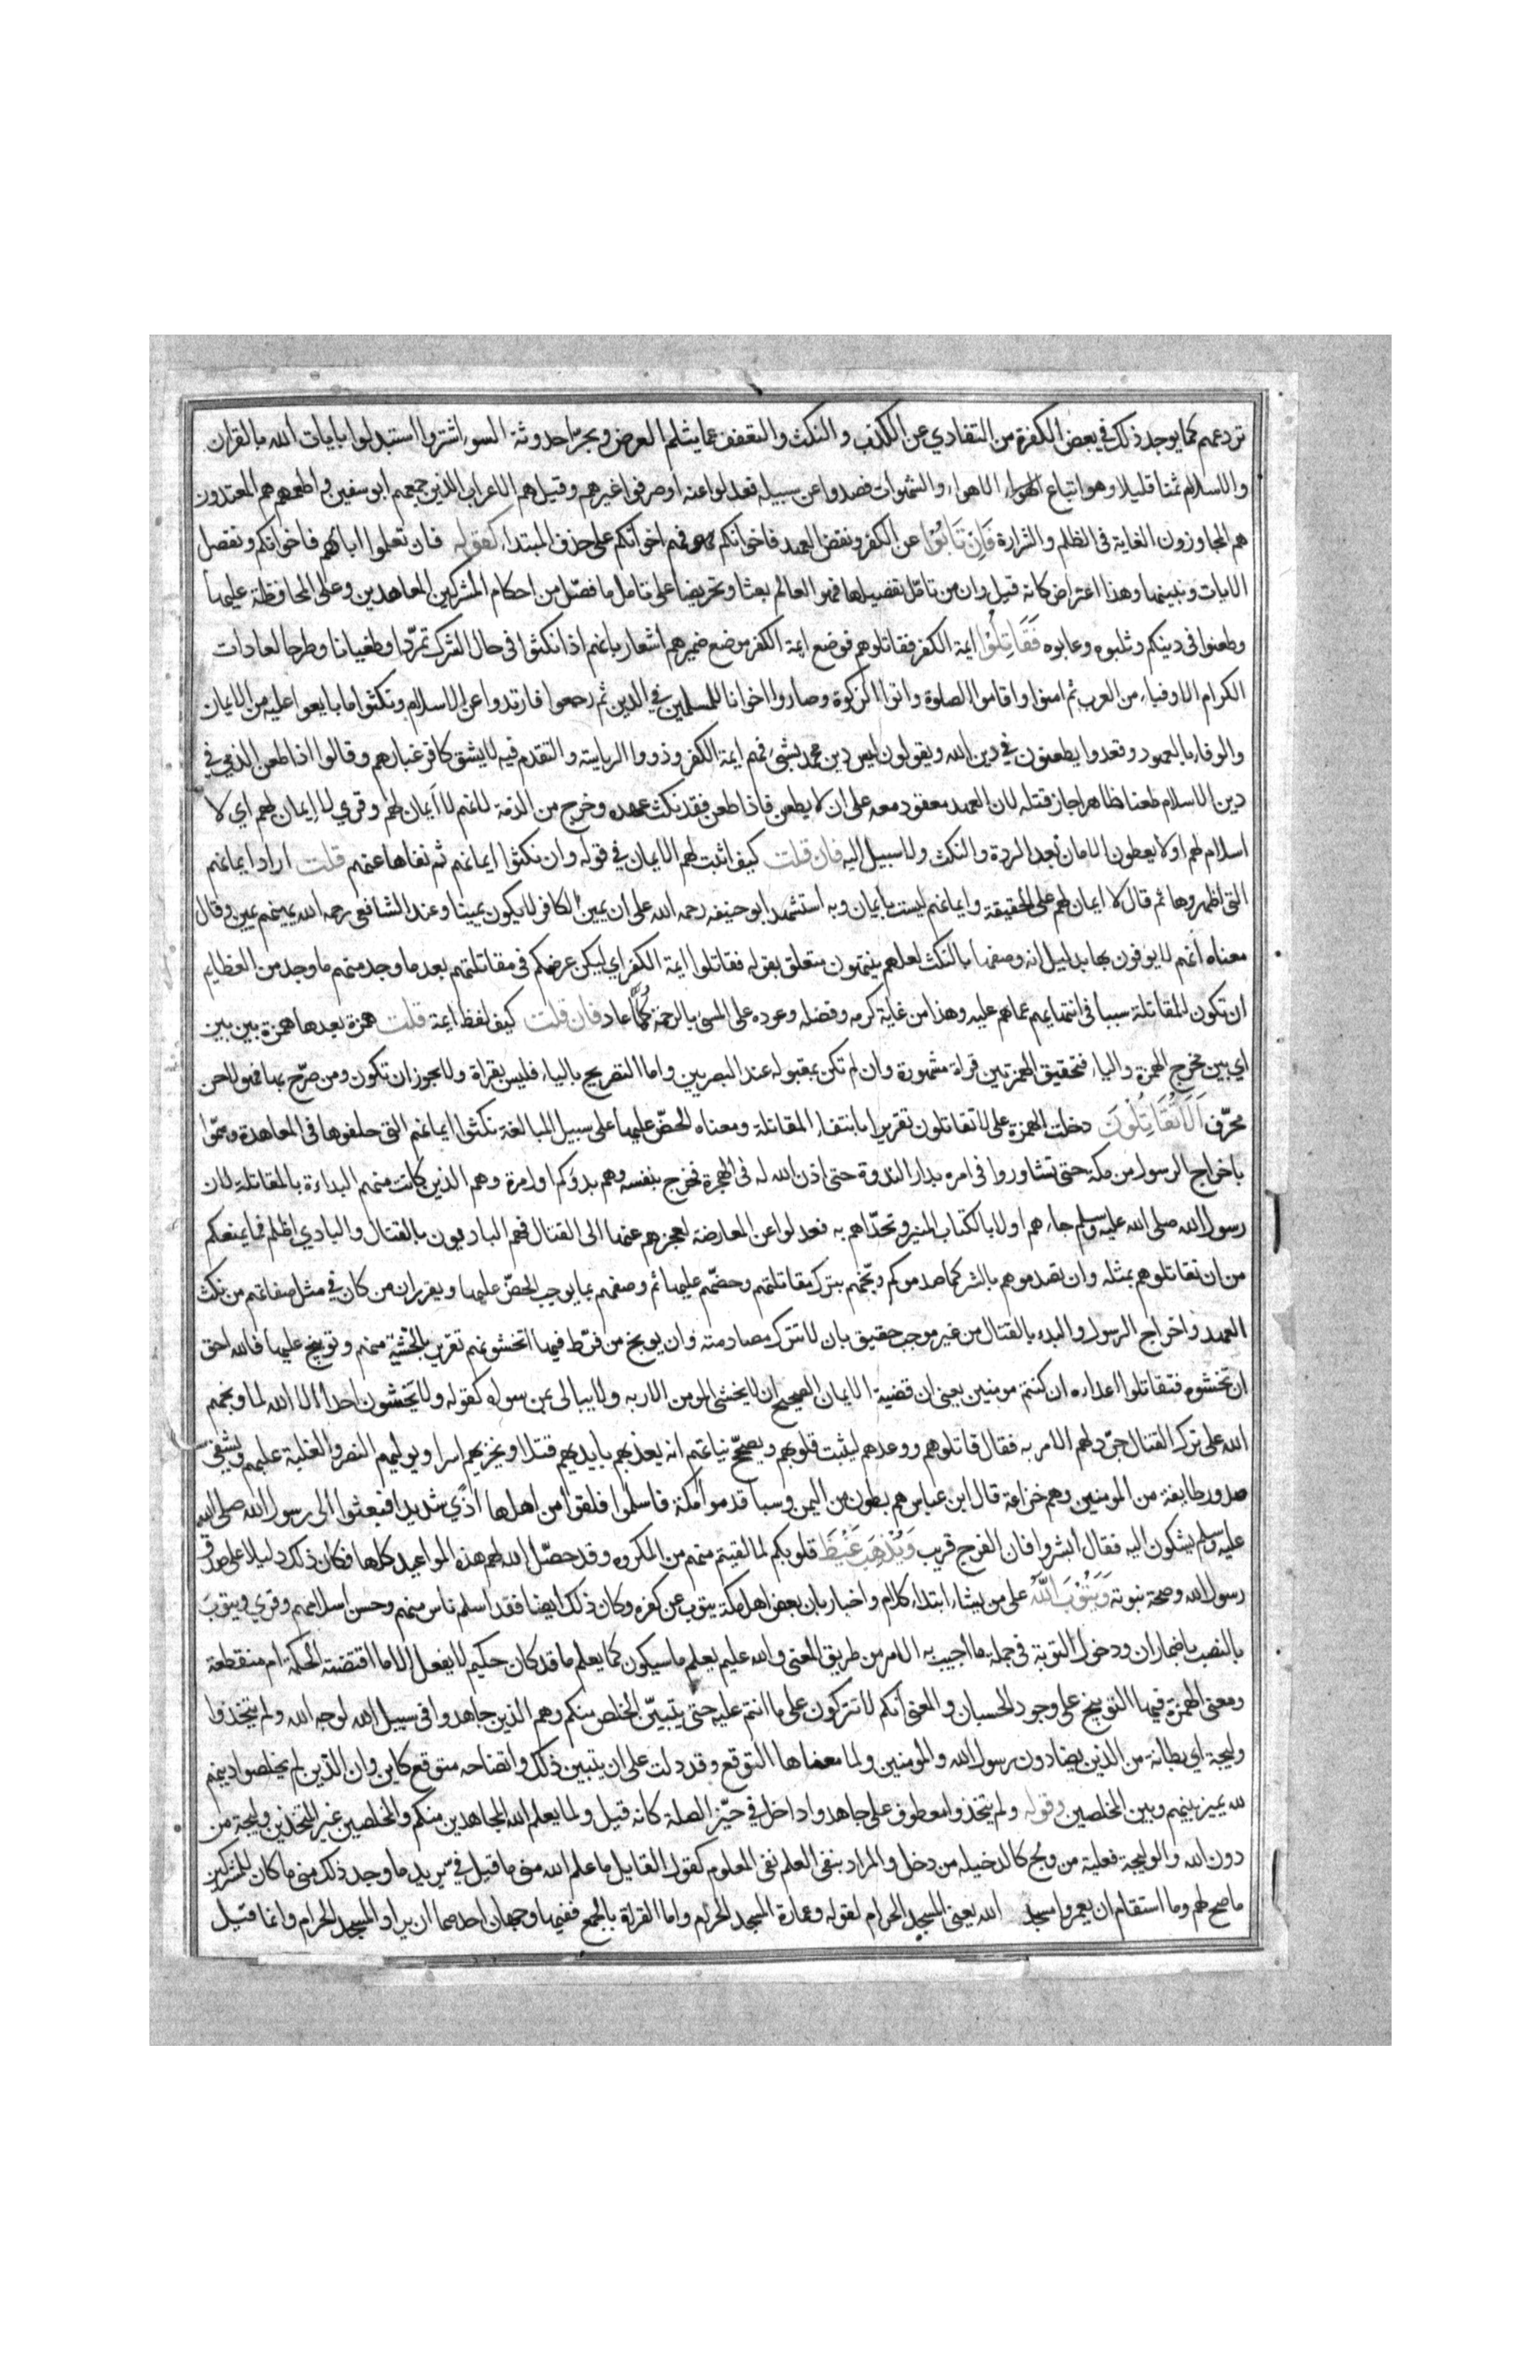 تردعهم كما يوجد ذلك في بعض الكفرة من التفادي عن الكذب والنكث والتعفف عما يثلم العرض ويجرّ احدوثة السوء اشتروا استبدلوا بايات الله بالقران
والاسلام ثمنا قليلا وهو اتباع الاهواء والشهوات فصدوا عن سبيله فعدلوا عنه او صرفوا غيرهم وقيل هم الاعراب الذين جمعهم ابو سفين واطعمهم هم المعتدون
هم المجاوزون الغاية في الظلم والشرارة فَاِنْ تَابُوْا عن الكفر ونقض العهد فاخوانكم فهم اخوانكم على حذف المبتداء كقوله فان تعلموا ابائهم فاخوانكم ونفصل
الايات ونبينها وهذا اعتراض كانه قيل وان من تامّل تفصيلها فهو العالم بعثا وتحريضا على تامل ما فصّل من احكام المشركين المعاهدين وعلى المحافظة عليها
وطعنوا في دينكم وثلبوه وعابوه فَقَاتِلُوْا ايمة الكفر فقاتلوهم فوضع ايمة الكفر موضع ضميرهم اشعار بانهم اذا نكثوا في حال الشرك تمرّدا وطغيانا وطرحا لعادات
الكرام الاوفياء من العرب ثم امنوا واقاموا الصلوة واتوا الزكوة وصاروا اخوانا للمسلمين في الدين ثم رجعوا فارتدوا عن الاسلام ونكثوا ما بايعوا عليه من الايمان
والوفاء بالعهود وقعدوا يطعنون في دين الله ويقولون ليس دين محمد بشيء فهم ايمة الكفر وذووا الرياسة والتقدم فيه لا يشق كافر غبارهم وقالوا اذا طعن الذمي في
دين الاسلام طعنا ظاهرا جاز قتله لان العهد معقود معه على ان لا يطعن فاذا طعن فقد نكث عهده وخرج من الذمة لانهم لا اَيمان لهم وقري لا اِيمان لهم اي لا
اسلام لهم او لا يعطون الامان بعد الردة والنكث ولا سبيل اليه فان قلت كيف اثبت لهم الايمان في قوله وان نكثوا ايمانهم ثم نفاها عنهم قلت اراد ايمانهم
التي اظهروها ثم قال لا ايمان لهم على الحقيقة وايمانهم ليست بايمان وبه استشهد ابو حنيفه رحمه الله على ان يمين الكافر لا يكون يمينا وعند الشافعي رحمه الله يمينهم يمين وقال
معناه انهم لا يوفون بها بدليل انه وصفها بالنكث لعلهم ينتهون متعلق بقوله فقاتلوا ايمة الكفر اي ليكن غرضكم في مقاتلتهم بعد ما وجد منهم ما وجد من العظايم
ان تكون المقاتلة سببا في انتهايهم عماهم عليه وهذا من غاية كرمه وفضله وعوده على المسي بالرحمة كلّما عاد فان قلت كيف لفظ ايمة قلت همزة بعدها همزة بين بين
اي بين مخرج الهمزة والياء فتحقيق الهمزتين قراة مشهورة وان لم تكن بمقبوله عند البصريين واما التصريح بالياء فليس بقراة ولا يجوز ان تكون ومن صرّح بها فهو لاحن
محرّف اَلَا تُقَاتِلُوْنَ دخلت الهمزة على لا تقاتلون تقريرا بانتفاء المقاتلة ومعناه الحضّ عليها على سبيل المبالغة نكثوا ايمانهم التي حلفوها في المعاهدة وهمّوا
باخراج الرسول من مكة حتى تشاوروا في امره بدار الندوة حتى اذن الله له في الهجرة فخرج بنفسه وهم بدؤكم اول مرة وهم الذين كانت منهم البداءة بالمقاتلة لان
رسول الله صلى الله عليه وسلم جاءهم اولا بالكتاب المنير وتحدّاهم به فعدلوا عن المعارضة لعجزهم عنها الى القتال فهم الباديون بالقتال والبادي اظلم فما يمنعكم
من ان تقاتلوهم بمثله وان تصدموهم بالشر كما صدموكم وبّخهم بترك مقاتلتهم وحضّهم عليها ثم وصفهم بما يوجب الحضّ عليها ويقرر ان من كان في مثل صفاتهم من نكث
العهد واخراج الرسول والبدء بالقتال من غير موجب حقيق بان لا تترك مصادمته وان يوبخ من فرّط فيها اتخشونهم تقرير بالخشية منهم وتوبيخ عليها فالله احق
ان تخشوه فتقاتلوا اعداءه ان كنتم مومنين يعني ان قضية الايمان الصحيح ان لا يخشى المومن الا ربه ولا يبالي بمن سواه كقوله ولا يخشون احدا الا الله لما وبخهم
الله على ترك القتال جرّد لهم الامر به فقال قاتلوهم ووعدهم ليثبت قلوبهم ويصحّح نياتهم انه يعذبهم بايديهم قتلا ويخزيهم اسرا ويوليهم النصر والغلبة عليهم ويشفي
صدور طايفة من المومنين وهم خزاعة قال ابن عباس هم بطون من اليمن وسبا قدموا مكة فاسلموا فلقوا من اهلها اذي شديدا فبعثوا الى رسول الله صلى الله
عليه وسلم يشكون اليه فقال ابشروا فان الفرج قريب وَيُذْهِبْ غَيْظَ قلوبكم لما لقيتم منهم من المكروه وقد حصّل الله لهم هذه المواعيد كلها فكان ذلك دليلا على صدق
رسول الله وصحة نبوته وَيَتُوْبَ اللّٰه على من يشاء ابتداء كلام واخبار بان بعض اهل مكة يتوب عن كفره وكان ذلك ايضا فقد اسلم ناس منهم وحسن اسلامهم وقري ويتوبَ
بالنصب باضمار ان ودخول التوبة في جملة ما اجيب به الامر من طريق المعنى والله عليم يعلم ما سيكون كما يعلم ما قد كان حكيم لا يفعل الا ما اقتضته الحكمة ام منقطعة
ومعنى الهمزة فيها التوبيخ على وجود الحسبان والمعنى انكم لا تتركون على ما انتم عليه حتى يتبيّن الخلص منكم وهم الذين جاهدوا في سبيل الله لوجه الله ولم يتخذوا
وليجة اي بطانة من الذين يضادون رسول الله والمومنين ولما معناها التوقع وقد دلت على ان يتبين ذلك واتضاحه متوقع كاين وان الذين لم يخلصوا دينهم
لله يميز بينهم وبين المخلصين وقوله ولم يتخذوا معطوف على جاهدوا داخل في حيّز الصلة كانه قيل ولما يعلم الله المجاهدين منكم والمخلصين غير المتخذين وليجة من
دون الله والوليجة فعلية من ولج كالدخيله من دخل والمراد بنفي العلم نفي المعلوم كقول القايل ما علم الله مني ما قيل فيّ يريد ما وجد ذلك مني ما كان للمشركين
ما صح لهم وما استقام ان يعمروا مسجد الله يعني المسجد الحرام لقوله وعمارة المسجد الحرام واما القراة بالجمع ففيها وجهان احدهما ان يراد المسجد الحرام وانما قيل